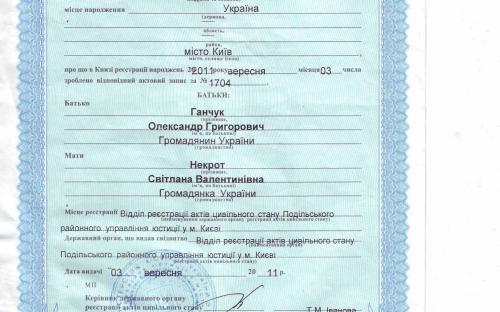 місце народження Україна
(держава,
область,
район,
місто Київ
місто, селище (село)
про що в Книзі реєстрації народжень 2011 року вересня місяця 03 числа
зроблено відповідний актовий запис за № 1704
БАТЬКИ:
Батько
Ганчук
(прізвище,
Олександр Григорович
ім'я, по батькові)
Громадянин України
(громадянство)
Мати
Некрот
(прізвище,
Світлана Валентинівна
ім'я, по батькові)
Громадянка України
(громадянство)
Місце реєстрації Відділ реєстрації актів цивільного стану Подільського
(найменування державного органу реєстрації актів цивільного стану)
районного управління юстиції у м. Києві
Державний орган, що видав свідоцтво Відділ реєстрації актів цивільного стану
(найменування державного органу
Подільського районного управління юстиції у м. Києві
реєстрації актів цивільного стану)
Дата видачі "03" вересня 2011 р.
МП
Керівник державного органу
реєстрації актів цивільного стану Т.М. Іванова